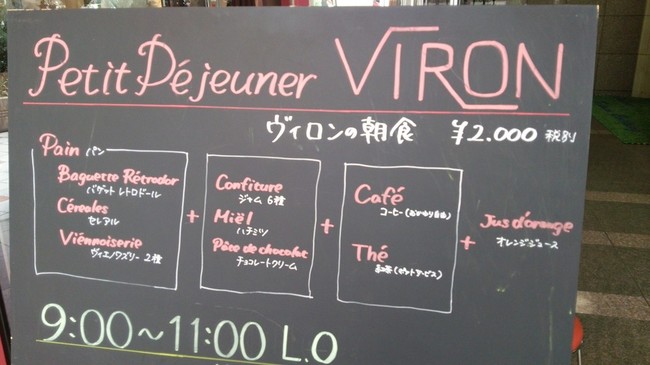 Petit Déjeuner VIRON
ヴィロンの朝食 ¥2.000 税別
Pain パン
Baguette Rétrodor
バゲット レトロドール
Céreales
セレアル
Viënnoiserie
ヴィエノワズリー 2種
+
Confiture
ジャム 6種
Miël
ハチミツ
Pâte de chocolat
チョコレートクリーム
+
Café
コーヒー(おかわり自由)
Thé
紅茶(ポットサービス)
+
Jus d'orange
オレンジジュース
9:00~11:00 L.O